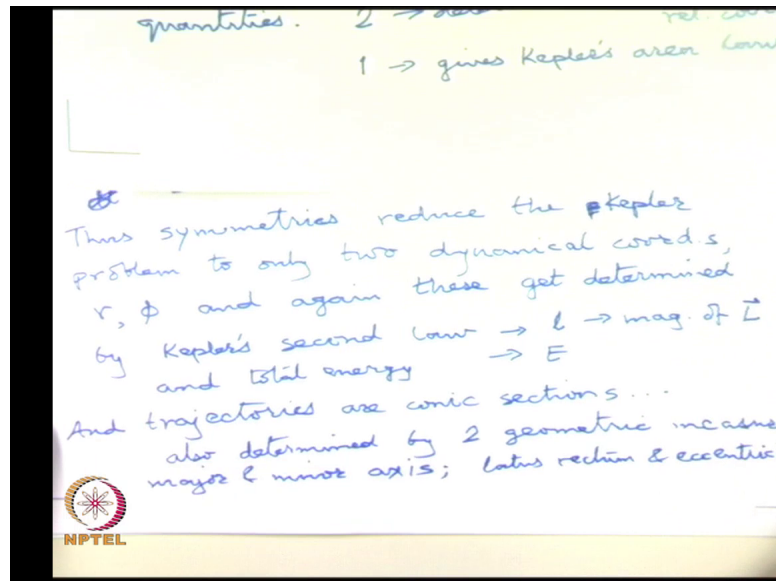 quantities. 2 →
rel.
1 → gives Kepler's area
Thus symmetries reduce the Kepler
problem to only two dynamical coord.s,
r, ϕ and again these get determined
by Kepler's second law → l → mag. of L⃗
and total energy → E
And trajectories are conic sections ...
also determined by 2 geometric
major & minor axis; latus rectum & eccentric
NPTEL